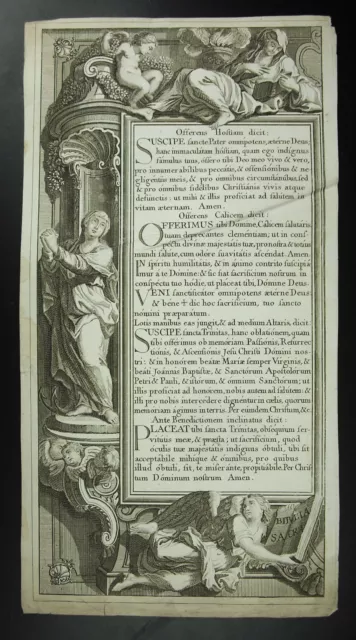 Offerens Hostiam dicit:
SUSCIPE sancte Pater omnipotens, æterne Deus,
hanc immaculatam hostiam, quam ego indignus
famulus tuus, offero tibi Deo meo vivo & vero,
pro innumerabilibus peccatis, & offensionibus & ne-
gligentiis meis, & pro omnibus circumstantibus, sed
& pro omnibus fidelibus Christianis vivis atque
defunctis: ut mihi & illis proficiat ad salutem in
vitam æternam. Amen.
Offerens Calicem dicit:
OFFERIMUS tibi Domine, Calicem salutaris
tuam deprecantes clementiam, ut in conf-
pectu divinæ majestatis tuæ, pro nostra & totius
mundi salute, cum odore suavitatis ascendat. Amen.
IN spiritu humilitatis, & in animo contrito suscipia
mur a te Domine: & sic fiat sacrificium nostrum in
conspectu tuo hodie, ut placeat tibi, Domine Deus.
VENI sanctificator omnipotens æterne Deus
& bene ✝ dic hoc sacrificium, tuo sancto
nomini præparatum.
Lotis manibus eas jungit, & ad medium Altaris, dicit.
SUSCIPE sancta Trinitas, hanc oblationem, quam
tibi offerimus ob memoriam Passionis, Resurrec
tionis, & Ascensionis Jesu Christi Domini nos-
tri: & in honorem beatæ Mariæ semper Virginis, &
beati Joannis Baptistæ, & Sanctorum Apostolorum
Petri & Pauli, & istorum, & omnium Sanctorum; ut
illis proficiat ad honorem, nobis autem ad salutem: &
illi pro nobis intercedere dignentur in cœlis, quorum
memoriam agimus in terris. Per eundem Christum, &c.
Ante Benedictionem inclinatus dicit:
PLACEAT tibi sancta Trinitas, obsequium ser-
vitutis meæ, & præsta; ut sacrificium, quod
oculis tuæ majestatis indignus obtuli, tibi sit
acceptabile mihique & omnibus, pro quibus
illud obtuli, sit, te miserante, propitiabile. Per Chris
tum Dominum nostrum. Amen.
BIBLIA
SACRA